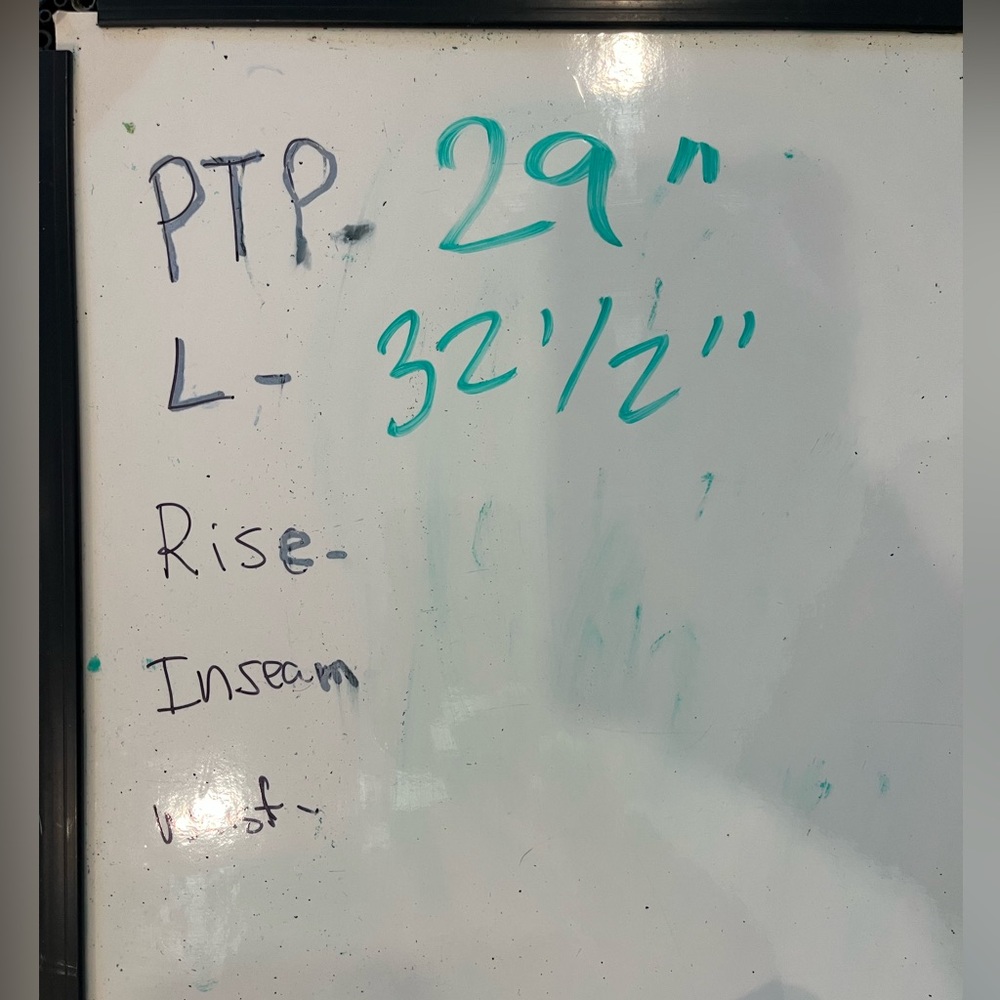 PTP- 29"
L- 32 1/2"
Rise-
Inseam